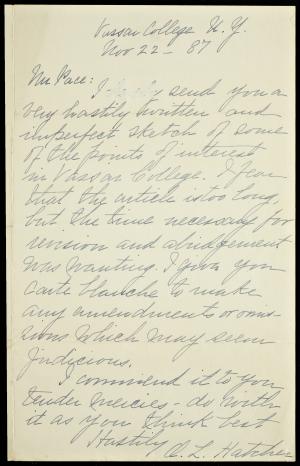 Vassar College N.Y.
Nov 22 - 87
Mr. Pace:
I send you a
very hastily written and
imperfect sketch of some
of the points of interest
in Vassar College. I fear
that the article is too long,
but the time necessary for
revision and abridgement
was wanting. I give you
carte blanche to make
any amendments or omis-
sions which may seem
judicious.
I commend it to your
tender mercies - do with
it as you think best
Hastily
O. L. Hatcher